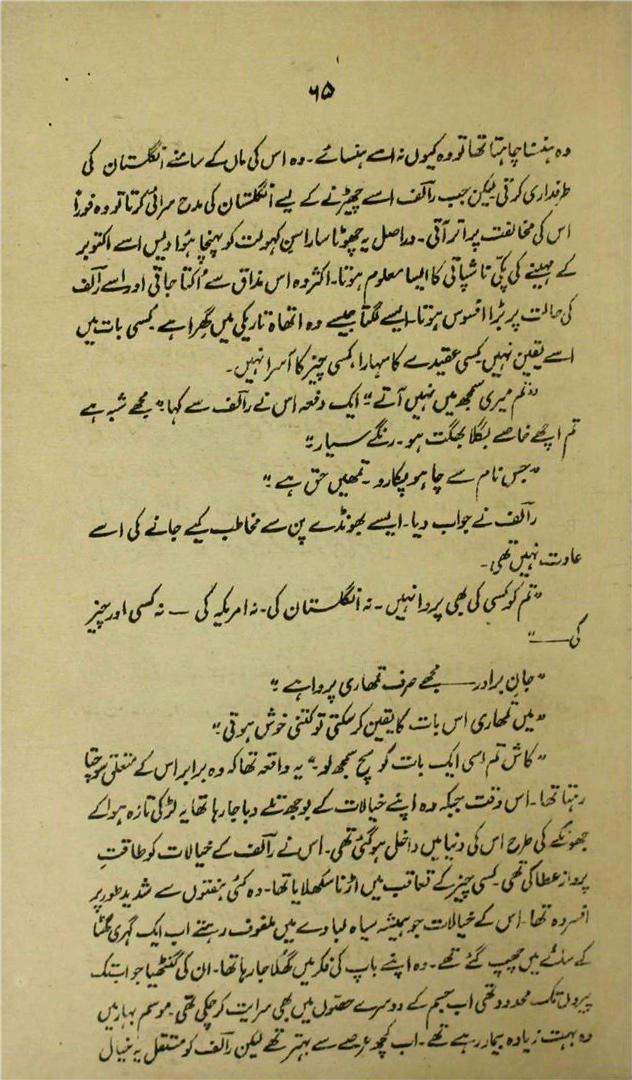 ۶۵
وہ ہنسنا چاہتا تھا تو وہ کیوں نہ اسے ہنسائے۔ وہ اس کی ماں کے سامنے انگلستان کی
طرفداری کرتی لیکن جب رآلف اسے چھیڑنے کے لیے انگلستان کی مدح سرائی کرتا تو وہ فوراً
اس کی مخالفت پر اتر آتی۔ دراصل یہ چھوٹا سارا سن کہولت کو پہنچا ہوا دیس اسے اکتوبر
کے مہینے کی پکّی ناشپاتی کا ایسا معلوم ہوتا۔ اکثر وہ اس مذاق سے اُکتا جاتی اور اسے رآلف
کی حالت پر بڑا افسوس ہوتا۔ ایسے لگتا جیسے وہ اتھاہ تاریکی میں گھرا ہے کسی بات میں
اسے یقین نہیں کسی عقیدے کا سہارا، کسی چیز کا آسرا نہیں۔
"تم میری سمجھ میں نہیں آتے" ایک دفعہ اس نے رآلف سے کہا "مجھے شبہ ہے
تم اچھے خاصے بگلا بھگت ہو۔ رنگے سیار"
"جس نام سے چاہو پکارو۔ تمھیں حق ہے"
رآلف نے جواب دیا۔ ایسے بھونڈے پن سے مخاطب کیے جانے کی اسے
عادت نہیں تھی۔
"تم کو کسی کی بھی پروا نہیں۔ نہ انگلستان کی۔ نہ امریکہ کی — نہ کسی اور چیز
کی —"
"جان برادر — مجھے صرف تمھاری پروا ہے"
"میں تمھاری اس بات کا یقین کر سکتی تو کتنی خوش ہوتی"
"کاش تم اسی ایک بات کو سچ سمجھ لو" یہ واقعہ تھا کہ وہ برابر اس کے متعلق سوچتا
رہتا تھا۔ اس وقت جبکہ وہ اپنے خیالات کے بوجھ تلے دبا جا رہا تھا یہ لڑکی تازہ ہوا کے
جھونکے کی طرح اس کی دنیا میں داخل ہو گئی تھی۔ اس نے رآلف کے خیالات کو طاقتِ
پرواز عطا کی تھی کسی چیز کے تعاقب میں اڑنا سکھلایا تھا۔ وہ کئی ہفتوں سے شدید طور پر
افسردہ تھا۔ اس کے خیالات جو ہمیشہ سیاہ لبادے میں ملفوف رہتے اب ایک گہری گھٹا
کے سائے میں چھپ گئے تھے۔ وہ اپنے باپ کی فکر میں گھلا جا رہا تھا۔ ان کی گنٹھیا جو اب تک
پیروں تک محدود تھی اب جسم کے دوسرے حصّوں میں بھی سرایت کر چکی تھی۔ موسم بہار میں
وہ بہت زیادہ بیمار رہے تھے۔ اب کچھ عرصے سے بہتر تھے لیکن رآلف کو مستقل یہ خیال